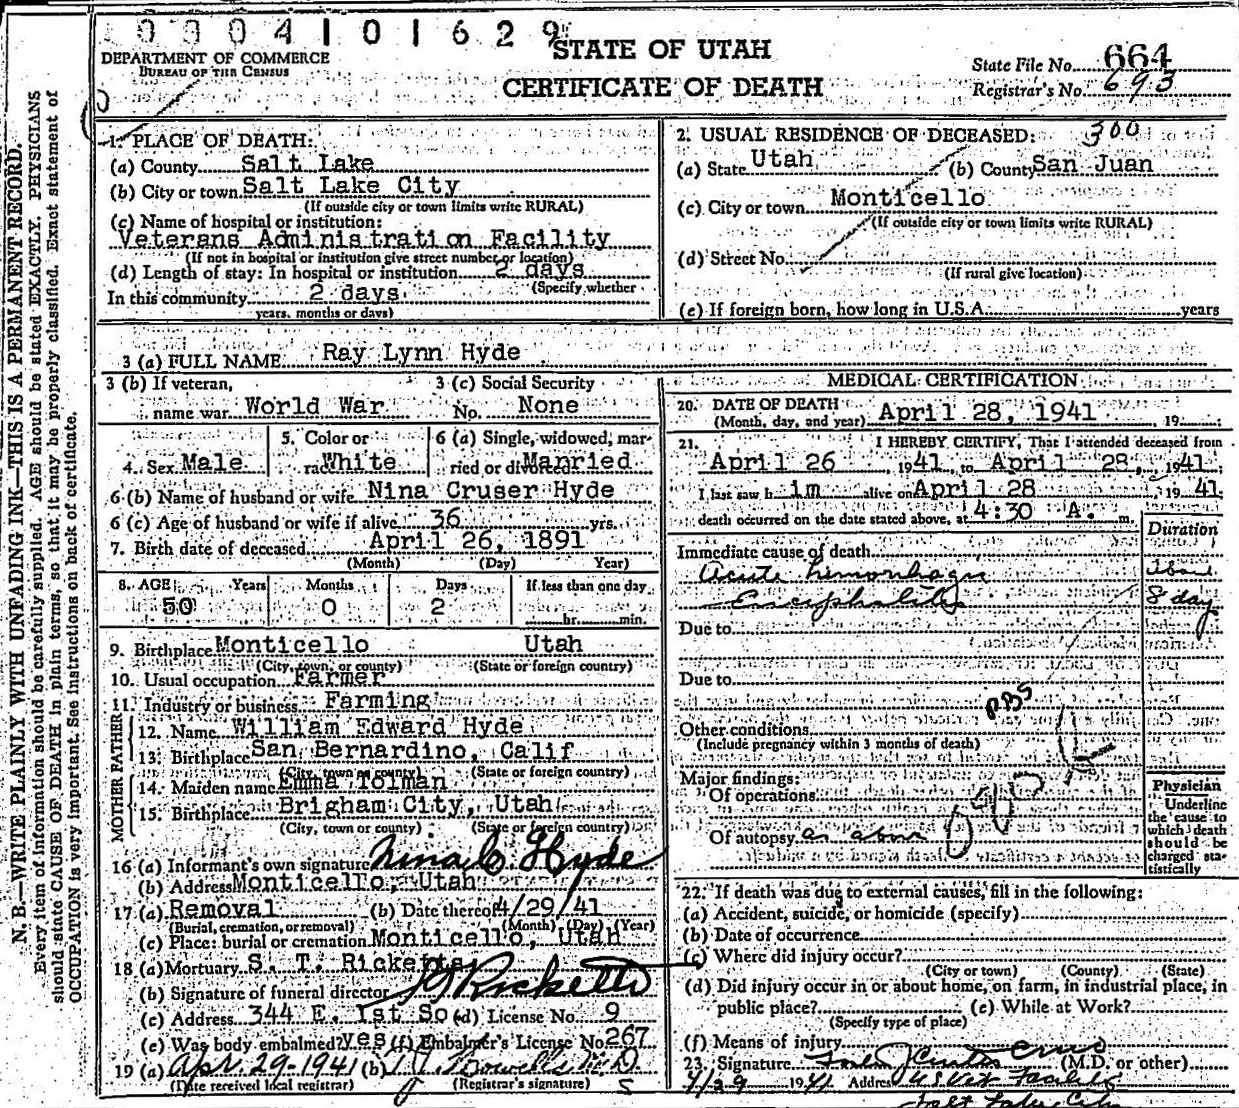 0004101629
DEPARTMENT OF COMMERCE
BUREAU OF THE CENSUS
STATE OF UTAH
CERTIFICATE OF DEATH
State File No. 664
Registrar's No. 693
N. B.—WRITE PLAINLY WITH UNFADING INK—THIS IS A PERMANENT RECORD.
Every item of information should be carefully supplied. AGE should be stated EXACTLY. PHYSICIANS
should state CAUSE OF DEATH in plain terms, so that it may be properly classified. Exact statement of
OCCUPATION is very important. See instructions on back of certificate.
1. PLACE OF DEATH:
(a) County Salt Lake
(b) City or town Salt Lake City
(If outside city or town limits write RURAL)
(c) Name of hospital or institution:
Veterans Administration Facility
(If not in hospital or institution give street number or location)
(d) Length of stay: In hospital or institution 2 days
(Specify whether
In this community 2 days
years, months or days)
2. USUAL RESIDENCE OF DECEASED: 300
(a) State Utah (b) County San Juan
(c) City or town Monticello
(If outside city or town limits write RURAL)
(d) Street No.
(If rural give location)
(e) If foreign born, how long in U.S.A. years
3 (a) FULL NAME Ray Lynn Hyde
3 (b) If veteran, 3 (c) Social Security
name war World War No. None
4. Sex Male 5. Color or race White 6 (a) Single, widowed, married or divorced Married
6 (b) Name of husband or wife Nina Cruser Hyde
6 (c) Age of husband or wife if alive 36 yrs.
7. Birth date of deceased April 26, 1891
(Month) (Day) Year)
8. AGE Years Months Days If less than one day
50 0 2 hr. min.
9. Birthplace Monticello Utah
(City, town, or county) (State or foreign country)
10. Usual occupation Farmer
11. Industry or business Farming
FATHER
12. Name William Edward Hyde
13. Birthplace San Bernardino, Calif
(City, town or county) (State or foreign country)
MOTHER
14. Maiden name Emma Tolman
15. Birthplace Brigham City, Utah
(City, town or county) (State or foreign country)
16 (a) Informant's own signature Nina C. Hyde
(b) Address Monticello, Utah
17 (a) Removal (b) Date thereof 4/29/41
(Burial, cremation, or removal) (Month) (Day) (Year)
(c) Place: burial or cremation Monticello, Utah
18 (a) Mortuary S. T. Ricketts
(b) Signature of funeral director Ricketts
(c) Address 344 E. 1st So (d) License No. 9
(e) Was body embalmed? yes (f) Embalmer's License No. 267
19 (a) Apr. 29-1941 (b) M.D.
(Date received local registrar) (Registrar's signature)
MEDICAL CERTIFICATION
20. DATE OF DEATH April 28, 1941
(Month, day, and year) , 19
21. I HEREBY CERTIFY, That I attended deceased from
April 26 1941, to April 28, 1941.
I last saw him alive on April 28 1941.
death occurred on the date stated above, at 4:30 A. m.
Duration
Immediate cause of death
Acute hemorrhagic
Encephalitis 8 day
Due to
Due to
PBS
Other conditions
(Include pregnancy within 3 months of death)
Major findings:
Of operations
Of autopsy as above
Physician
Underline
the cause to
which death
should be
charged sta-
tistically
22. If death was due to external causes, fill in the following:
(a) Accident, suicide, or homicide (specify)
(b) Date of occurrence
(c) Where did injury occur?
(City or town) (County) (State)
(d) Did injury occur in or about home, on farm, in industrial place, in
public place? (e) While at Work?
(Specify type of place)
(f) Means of injury
23. Signature (M.D. or other)
4/29 1941 Address US Vet Facility
Salt Lake City